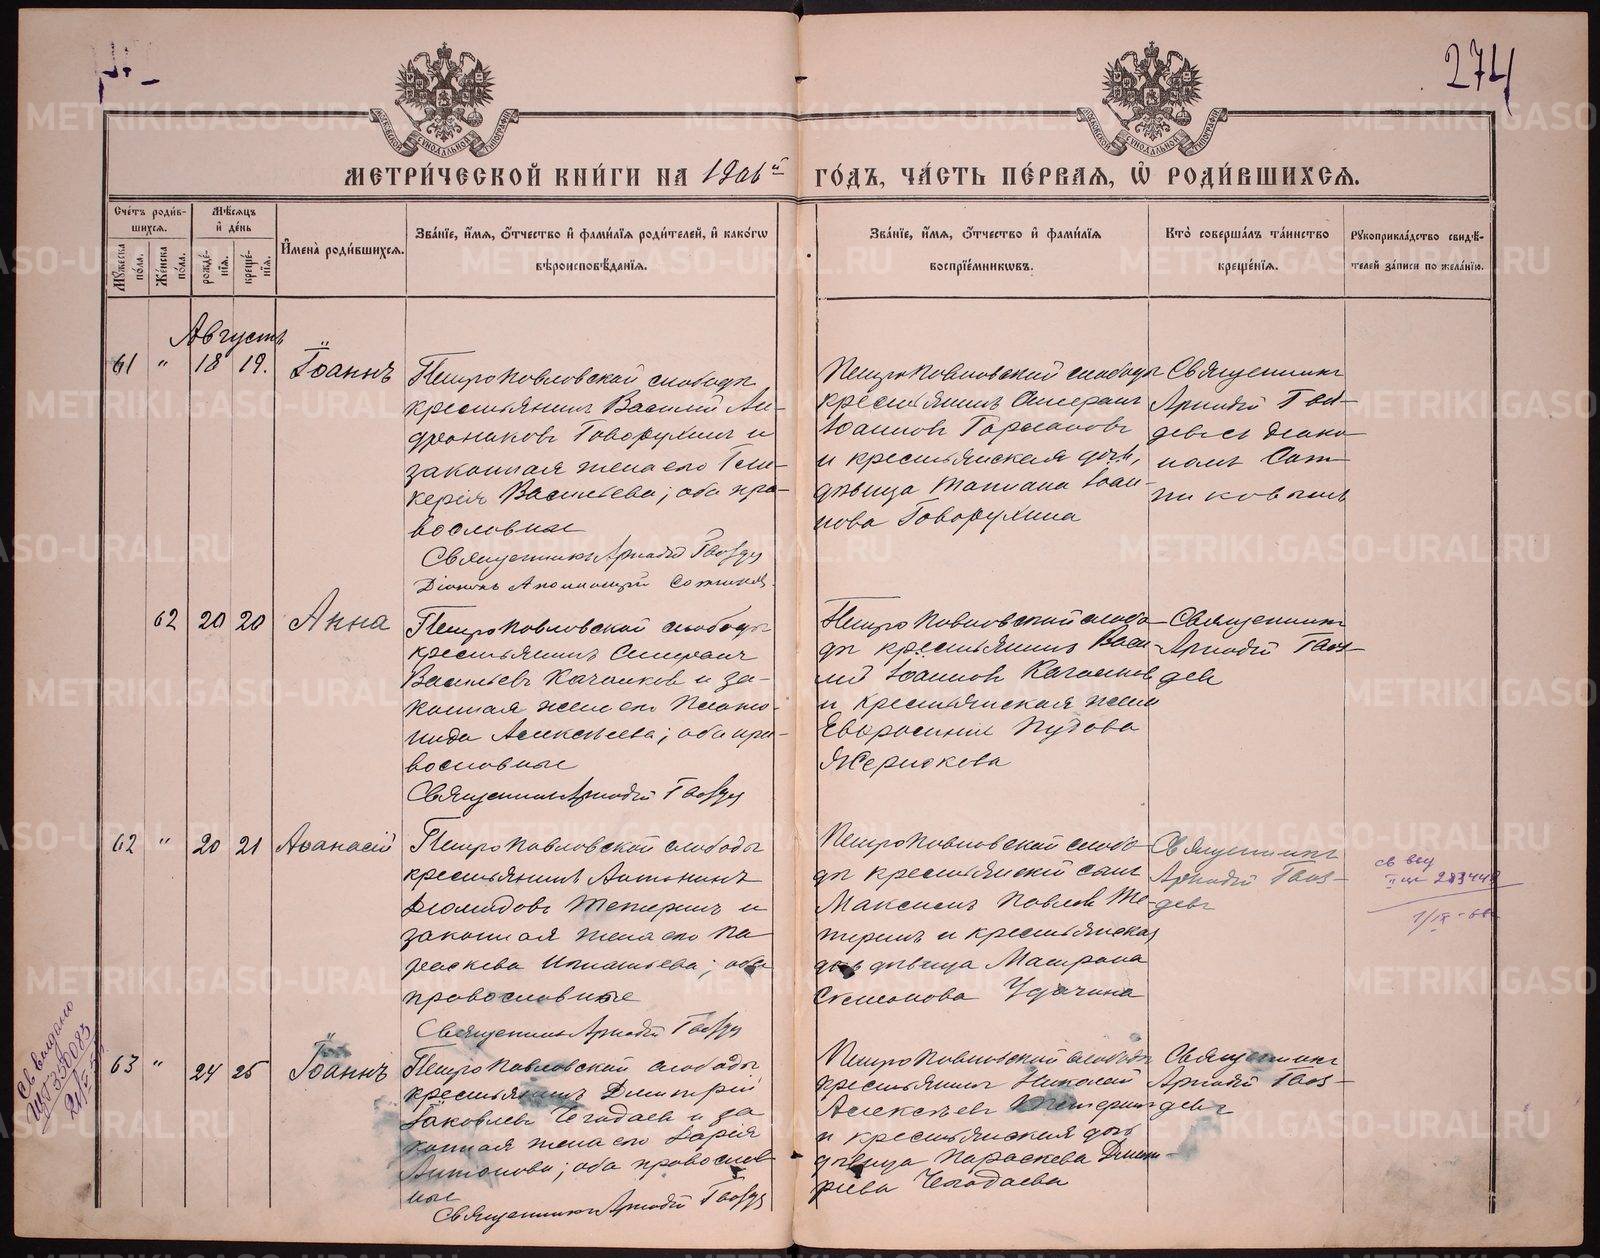 274
МЕТРИ́ЧЕСКОЙ КНИ́ГИ НА 1906й ГО́ДЪ, ЧА́СТЬ ПЕ́РВАЯ, Ѡ РОДИ́ВШИХСЯ.
Сче́тъ роди́вшихся.
Му́жеска по́ла.
Же́нска по́ла.
Мѣ́сяцъ и де́нь
рожде́нія.
креще́нія.
Имена̀ роди́вшихся.
Зва́ніе, и́мя, о́тчество и фами́лія роди́телей, и како́гѡ
вѣроисповѣ́данія.
Зва́ніе, и́мя, о́тчество и фами́лія
воспріе́мниковъ.
Кто̀ соверша́лъ та́инство
креще́нія.
Рукоприкла́дство свидѣ́-
телей за́писи по жела́нію.
Августъ
61 " 18 19. Іоаннъ
Петропавловской слободы
крестьянинъ Василій Ан-
дрониковъ Говорухинъ и
законная жена его Гли-
керія Васильева; оба пра-
вославные
Священникъ Аркадій Гвозде
Діаконъ
Петропавловской слободы
крестьянинъ
Іоанновъ
и крестьянская дочь,
дѣвица Татіана Іоан-
нова Говорухина
Священникъ
Аркадій Гвоз-
девъ съ діако-
номъ Сот-
никовымъ
62 20 20 Анна
Петропавловской слободы
крестьянинъ
Васильевъ и за-
конная жена его
Алексѣева; оба пра-
вославные
Священникъ Аркадій Гвозде
Петропавловской слобо-
ды крестьянинъ Васи-
лій Іоанновъ
и крестьянская жена
Евфросинія
Священникъ
Аркадій Гвоз-
девъ
62 " 20 21 Аѳанасій
Петропавловской слободы
крестьянинъ Антонинъ
Діомидовъ Тетеринъ и
законная жена его Па-
раскева Игнатьева; оба
православные
Священникъ Аркадій Гвозде
Петропавловской слобо-
ды крестьянскій сынъ
Максимъ Павловъ Те-
теринъ и крестьянская
дочь дѣвица Матрона
Симонова
Священникъ
Аркадій Гвоз-
девъ
63 " 24 25 Іоаннъ
Петропавловской слободы
крестьянинъ Димитрій
Іаковлевъ Чегодаевъ и за
конная жена его Дарія
Антонова; оба православ
ные
Священникъ Аркадій Гвозде
Петропавловской слободы
крестьянинъ Николай
Алексѣевъ Тетеринъ
и крестьянская дочь
дѣвица Параскева Димит-
ріева Чегодаева
Священникъ
Аркадій Гвоз-
девъ
METRIKI.GASO-URAL.RU